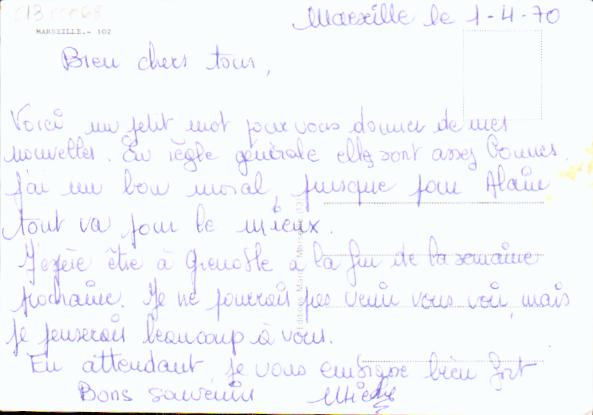 C13 00068
MARSEILLE.- 102
Marseille le 1-4-70
Bien chers tous,
Voici un petit mot pour vous donner de mes
nouvelles. En règle générale elles sont assez bonnes.
J'ai un bon moral, puisque pour Alain
tout va pour le mieux.
J'espère être à Grenoble à la fin de la semaine
prochaine. Je ne pourrais pas venir vous voir, mais
je penserais beaucoup à vous.
En attendant je vous embrasse bien fort
Bons souvenirs